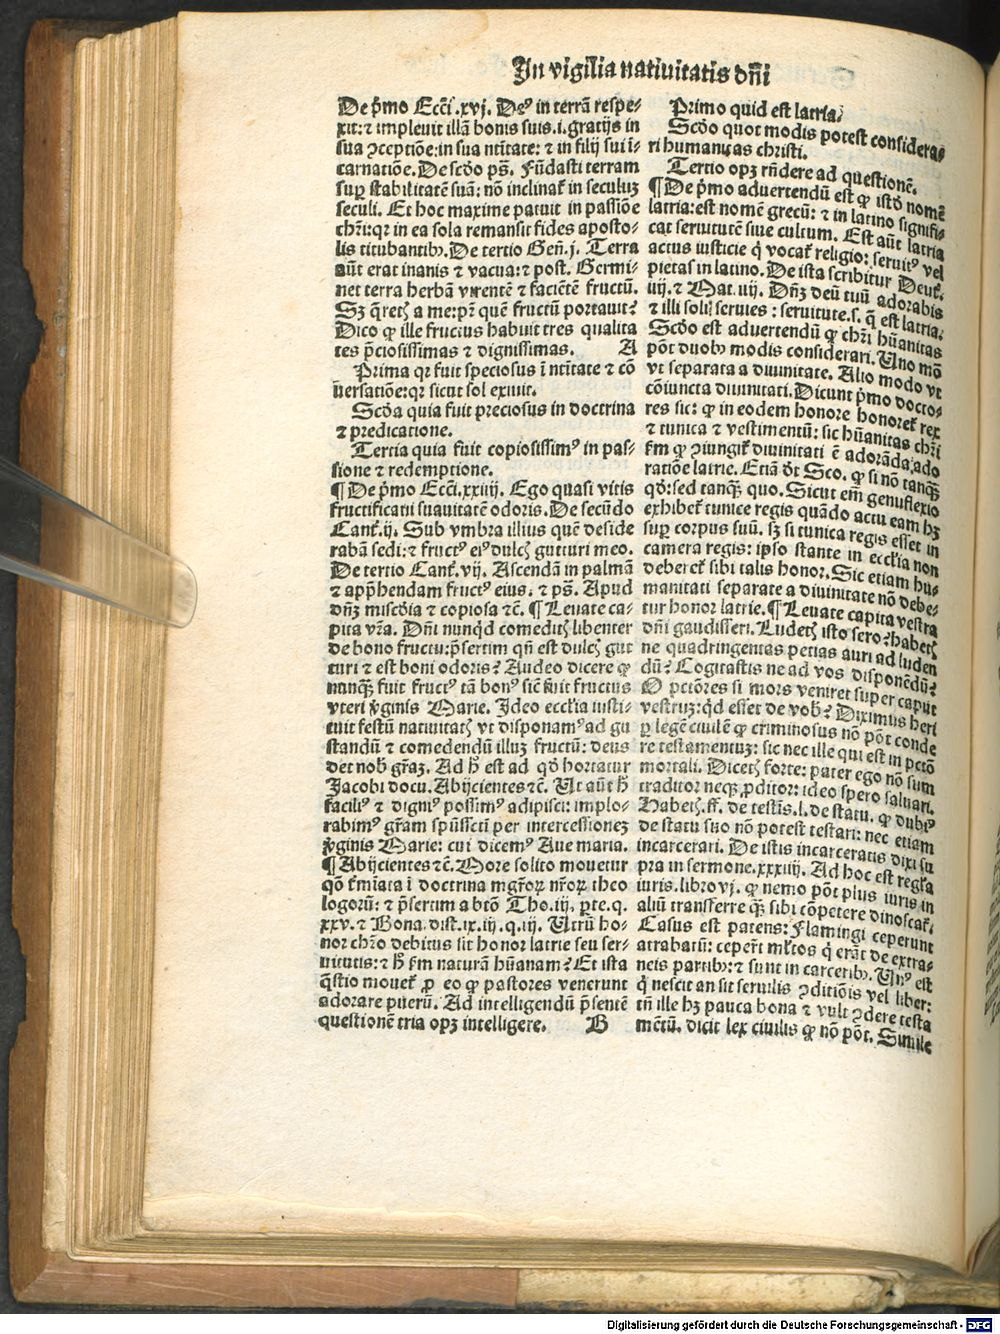 In vigilia natiuitatis dñi
De p̃mo Ecci̇̃.xvj. Deꝰ in terrã respe⸗
xit: ⁊ impleuit illã bonis suis.i.gratijs in
sua ꝯceptiõe: in sua nt̃itate: ⁊ in filij sui ĩ⸗
carnatiõe. De scd̃o ps̃. Fũdasti terram
suꝑ stabilitatẽ suã: nõ inclinaƭ in seculuꝫ
seculi. Et hoc maxime patuit in passiõe
chr̃i: qꝛ in ea sola remansit fides aposto⸗
lis titubantibꝰ. De tertio Geñ.j. Terra
aũt erat inanis ⁊ vacua: ⁊ post. Germi⸗
net terra herbã virentẽ ⁊ faciẽtẽ fructũ.
Sꝫ q̃retꝭ a me: pꝛ̃ quẽ fructũ portauit?
Dico ꝙ ille fructus habuit tres qualita
tes p̃ciosissimas ⁊ dignissimas. A
Prima qꝛ fuit speciosus ĩ nt̃itate ⁊ cõ
ṽersatiõe: qꝛ sicut sol exiuit.
Scd̃a quia fuit preciosus in doctrina
⁊ predicatione.
Tertia quia fuit copiosissimꝰ in pas⸗
sione ⁊ redemptione.
¶ De p̃mo Ecci̇̃.xxiiij. Ego quasi vitis
fructificaui suauitatẽ odoris. De secũdo
Canƭ.ij. Sub vmbra illius quẽ deside
rabã sedi: ⁊ fructꝰ eiꝰ dulcꝭ gutturi meo.
De tertio Canƭ.vij. Ascendã in palmã
⁊ app̃hendam fructꝰ eius. ⁊ ps̃. Apud
dñꝫ miscd̃ia ⁊ copiosa ⁊c̃. ¶ Leuate ca⸗
pita vr̃a. Dñi nunqͥd comeditꝭ libenter
de bono fructu: p̃sertim qñ est dulcꝭ gut
turi ⁊ est boni odoris? Audeo dicere ꝙ
nunqꝫ̃ fuit fructꝰ tã bonꝰ sic̃ fuit fructus
vteri v̓ginis Marie. Ideo eccl̃ia insti⸗
tuit festũ natiuitatꝭ vt disponamꝰ ad gu
standũ ⁊ comedendũ illuꝫ fructũ: deus
det nob̃ gr̃aꝫ. Ad h̃ est ad qd̃ hortatur
Jacobi docu. Abijcientes ⁊c̃. Ut aũt h̃
faciliꝰ ⁊ digniꝰ possimꝰ adipisci: implo⸗
rabimꝰ gr̃am spũssct̃i per intercessioneꝫ
v̓ginis Marie: cui dicemꝰ Aue maria.
¶ Abijcientes ⁊c̃. More solito mouetur
qõ t̃mĩata ĩ doctrina mgr̃oꝝ nr̃oꝝ theo
logorũ: ⁊ p̃sertim a btõ Tho.iij. ꝑte.q.
xxv. ⁊ Bona. dist.ix.iij.q.iij. Utrũ ho⸗
nor chr̃o debitus sit honor latrie seu ser⸗
uitutis: ⁊ h̃ f̃m naturã hũanam? Et ista
q̃stio moueƭ ꝓ eo ꝙ pastores venerunt
adorare puerũ. Ad intelligendũ p̃sentẽ
questionẽ tria opꝫ intelligere. B
Primo quid est latria.
Scd̃o quot modis potest considera⸗
ri humanitas christi.
Tertio opꝫ rñdere ad questionẽ.
¶ De p̃mo aduertendũ est ꝙ istd̃ nomẽ
latria: est nomẽ grecũ: ⁊ in latino signifi⸗
cat seruitutẽ siue cultum. Est aũt latria
actus iusticie q̃ vocaƭ religio: seruitꝰ vel
pietas in latino. De ista scribitur Deuƭ.
iiij. ⁊ Mat.iiij. Dñꝫ deũ tuũ adorabis
⁊ illi soli seruies: seruitute.s. q̃ est latria.
Scd̃o est aduertendũ ꝙ chr̃i hũanitas
põt duobꝰ modis considerari. Uno mõ
vt separata a diuinitate. Alio modo vt
cõiuncta diuinitati. Dicunt p̃mo docto⸗
res sic: ꝙ in eodem honore honoreƭ rex
⁊ tunica ⁊ vestimentũ: sic hũanitas chr̃i
f̃m ꝙ ꝯiungiƭ diuinitati ẽ adorãda: ado
ratiõe latrie. Etiã d̃t Sco. ꝙ si nõ tanqꝫ̃
qd̃: sed tanqꝫ̃ quo. Sicut em̃ genuflexio
exhibeƭ tunice regis quãdo actu eam hꝫ
suꝑ corpus suũ. sꝫ si tunica regis esset in
camera regis: ipso stante in eccl̃ia non
debereƭ sibi talis honor. Sic etiam hu⸗
manitati separate a diuinitate nõ debe⸗
tur honor latrie. ¶ Leuate capita vestra
dñi gaudisseri. Ludetꝭ isto sero? habetꝭ
ne quadringentas petias auri ad luden
dũ? Cogitastis ne ad vos disponẽdũ?
O pctõres si mors veniret super caput
vestruꝫ: qͥd esset de vob̃? Diximus heri
ꝑ legẽ ciuilẽ ꝙ criminosus nõ põt conde
re testamentuꝫ: sic nec ille qui est in pctõ
mortali. Dicetꝭ forte: pater ego nõ sum
traditor neqꝫ ꝓditor: ideo spero saluari.
Habetꝭ.ff. de testis.l.de statu. ꝙ dubiꝰ
de statu suo nõ potest testari: nec etiam
incarcerari. De istis incarceratis dixi su
pra in sermone.xxxiiij. Ad hoc est regl̃a
iuris.libro vj. ꝙ nemo põt plus iuris in
aliũ transferre qꝫ̃ sibi cõpetere dinoscaƭ.
Casus est patens: Flamingi ceperunt
atrabatũ: ceper̃t ml̃tos q̃ erãt de extra⸗
neis partibꝰ: ⁊ sunt in carceribꝰ. Unꝰ est
q̃ nescit an sit seruilis ꝯditiõis vel liber:
tñ ille hꝫ pauca bona ⁊ vult ꝯdere testa
mẽtũ. dicit lex ciuilis ꝙ nõ põt. Simile
Digitalisierung gefördert durch die Deutsche Forschungsgemeinschaft - DFG